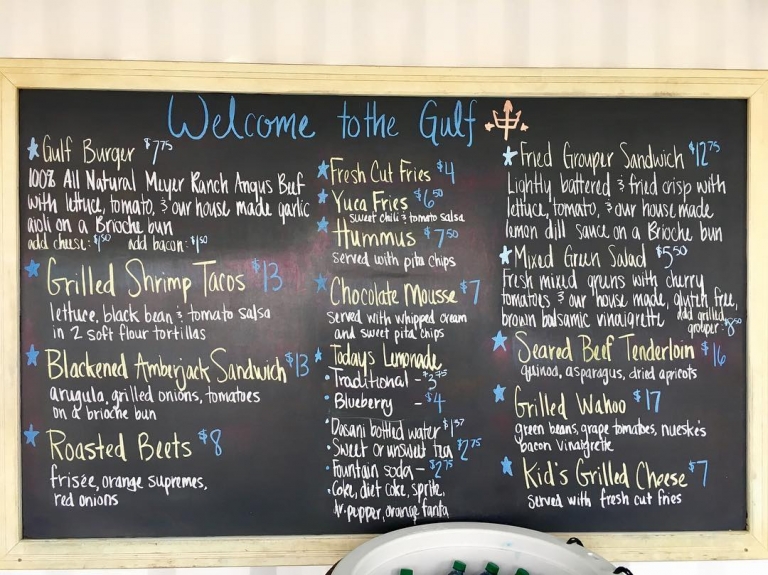 Welcome to the Gulf
Gulf Burger $7.75
100% All Natural Meyer Ranch Angus Beef
with lettuce, tomato, & our house made garlic
aioli on a Brioche bun
add cheese: $1.50 add bacon: $1.50
Grilled Shrimp Tacos $13
lettuce, black bean & tomato salsa
in 2 soft flour tortillas
Blackened Amberjack Sandwich $13
arugula, grilled onions, tomatoes
on a brioche bun
Roasted Beets $8
frisée, orange supremes,
red onions
Fresh Cut Fries $4
Yuca Fries $6.50
sweet chili & tomato salsa
Hummus $7.50
served with pita chips
Chocolate Mousse $7
served with whipped cream
and sweet pita chips
Todays Lemonade
• Traditional - $3.75
• Blueberry - $4
• Dasani bottled water $1.37
• Sweet or unsweet tea $2.75
• Fountain soda - $2.75
• Coke, diet coke, sprite,
dr. pupper, orange fanta
Fried Grouper Sandwich $12.75
Lightly battered & fried crisp with
lettuce, tomato, & our house made
lemon dill sauce on a Brioche bun
Mixed Green Salad $5.50
Fresh mixed greens with cherry
tomatoes & our house made, gluten free,
brown balsamic vinaigrette add grilled
grouper: $8.50
Seared Beef Tenderloin $16
quinoa, asparagus, dried apricots
Grilled Wahoo $17
green beans, grape tomatoes, nueske's
bacon vinaigrette
Kid's Grilled Cheese $7
served with fresh cut fries